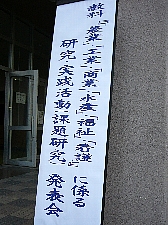 教科「農業」「工業」「商業」「水産」「福祉」「看護」
研究(実践活動・課題研究)に係る
発表会